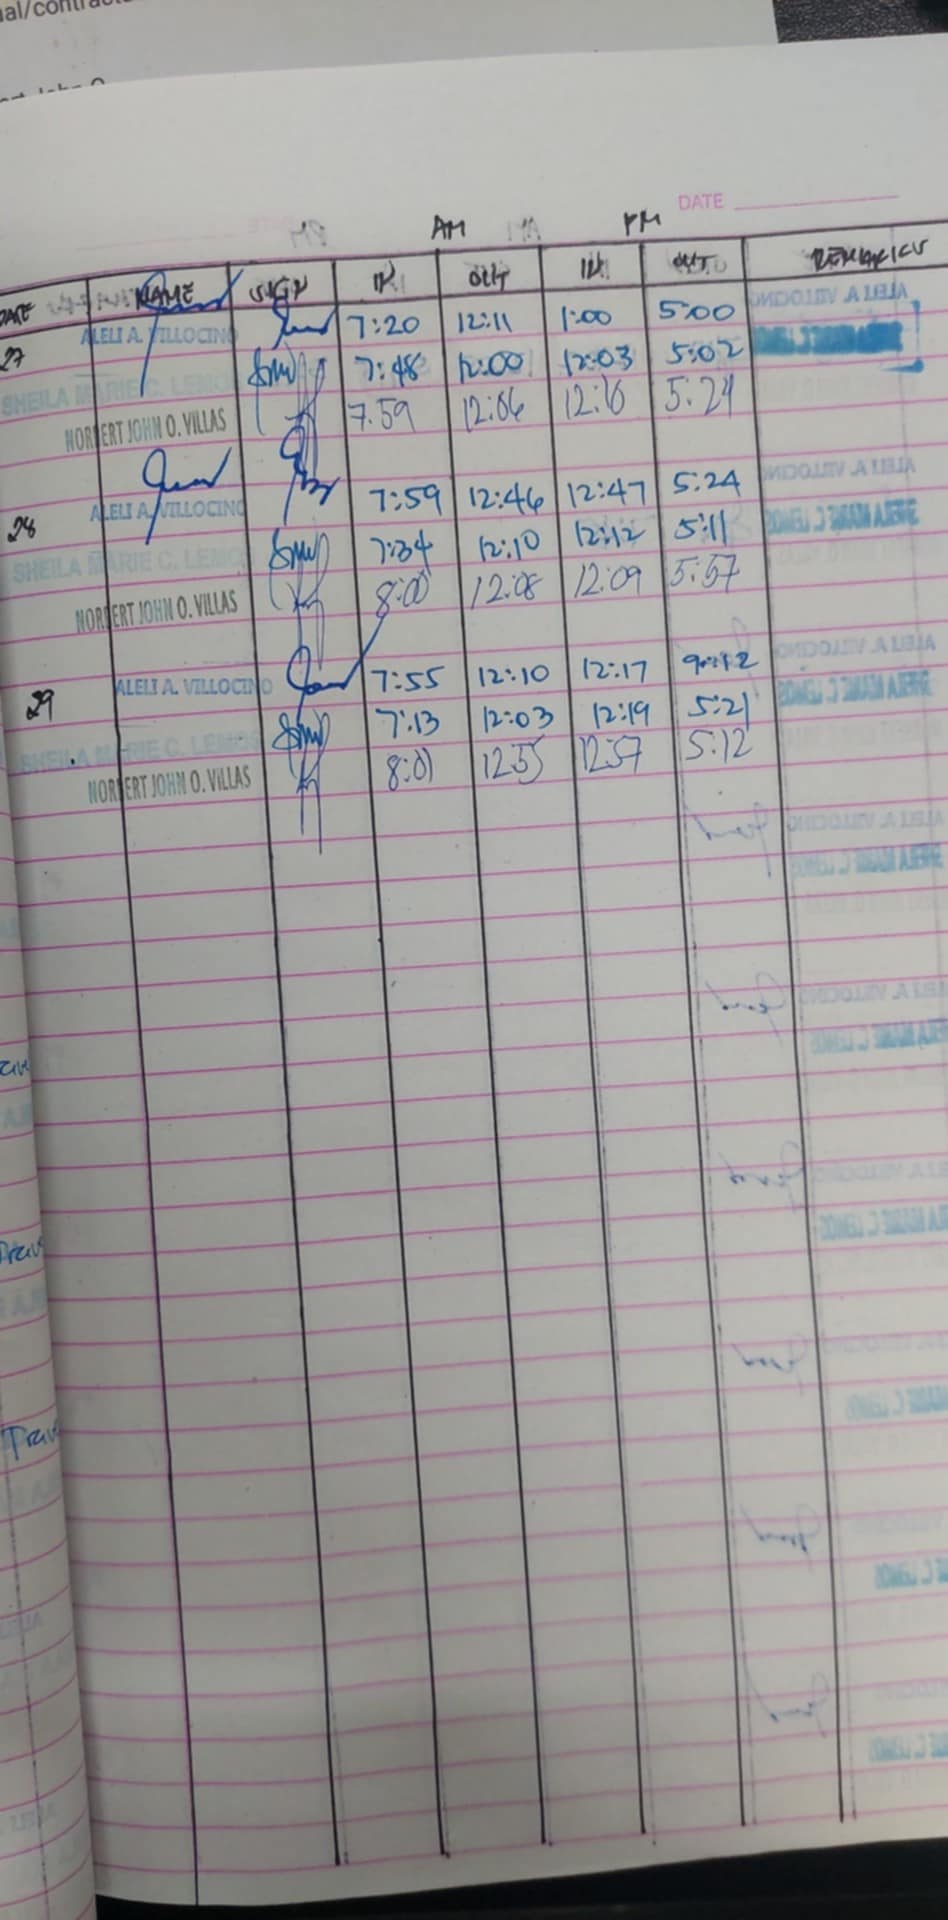 DATE
AM PM
DATE NAME SIGN IN OUT IN OUT REMARKS
27 ALELI A. VILLOCINO 7:20 12:11 1:00 5:00
SHEILA MARIE C. LEMOS 7:48 12:00 12:03 5:02
NORBERT JOHN O. VILLAS 7:59 12:06 5:24
28 ALELI A. VILLOCINO 7:59 12:46 12:47 5:24
SHEILA MARIE C. LEMOS 7:34 12:10 12:12 5:11
NORBERT JOHN O. VILLAS 8:00 12:08 12:09 5:57
29 ALELI A. VILLOCINO 7:55 12:10 12:17
SHEILA MARIE C. LEMOS 7:13 12:03 12:19 5:21
NORBERT JOHN O. VILLAS 8:01 12:55 12:57 5:12